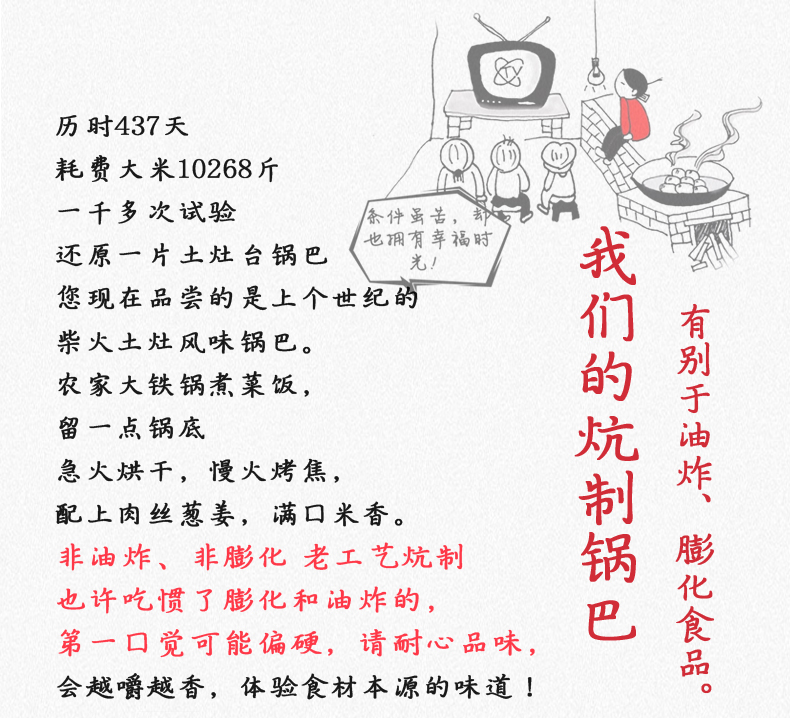 历时437天
耗费大米10268斤
一千多次试验
还原一片土灶台锅巴
您现在品尝的是上个世纪的
柴火土灶风味锅巴。
农家大铁锅煮菜饭，
留一点锅底
急火烘干，慢火烤焦，
配上肉丝葱姜，满口米香。
非油炸、非膨化 老工艺炕制
也许吃惯了膨化和油炸的，
第一口觉可能偏硬，请耐心品味，
会越嚼越香，体验食材本源的味道！
TV
条件虽苦，却
也拥有幸福时
光！
我们的炕制锅巴
有别于油炸、膨化食品。